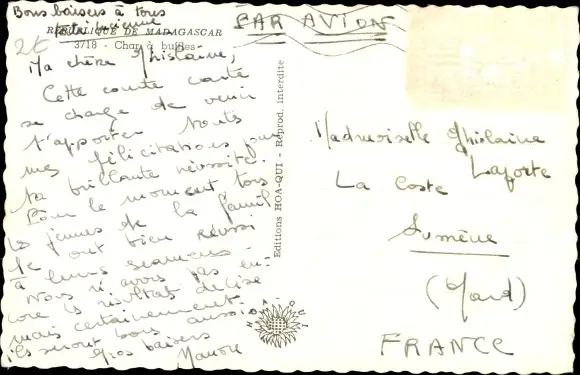 Bons baisers à tous
PAR AVION
REPUBLIQUE DE MADAGASCAR
3718 - Char à buffles
2€
Ma chère Ghislaine,
Cette courte carte
se charge de venir
t'apporter toute
mes félicitations pour
ta brillante réussite.
Pour le moment, tous
les jeunes de la famille
ont bien réussi
à leurs examens.
Nous n'avons pas en-
core les résultats de
mais certainement
ils seront bons aussi.
Gros baisers
Editions HOA-QUI - Reprod. interdite
HOA-QUI
Mademoiselle Ghislaine
Laporte
La Coste
Sumène
(Gard)
FRANCE